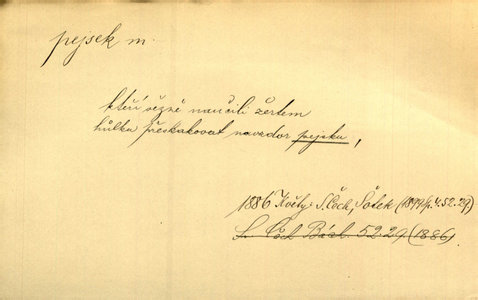 pejsek m.
kteří vězně naučili žertem
hůlku přeskakovat navzdor pejsku,
1886 Květy: S. Čech, Šotek (1899, p. 4. 52. 29)
S. Čech Básl. 52. 29. (1886)